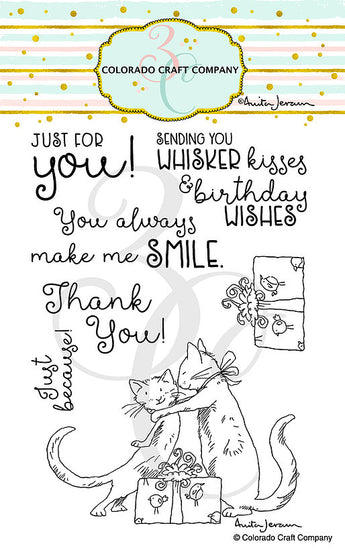 3C
COLORADO CRAFT COMPANY
©Anita Jeram
JUST FOR
you!
SENDING YOU
WHISKER kisses
& birthday
WISHES
You always
make me SMILE.
Thank
You!
Just
because!
3C
Anita Jeram
© Colorado Craft Company